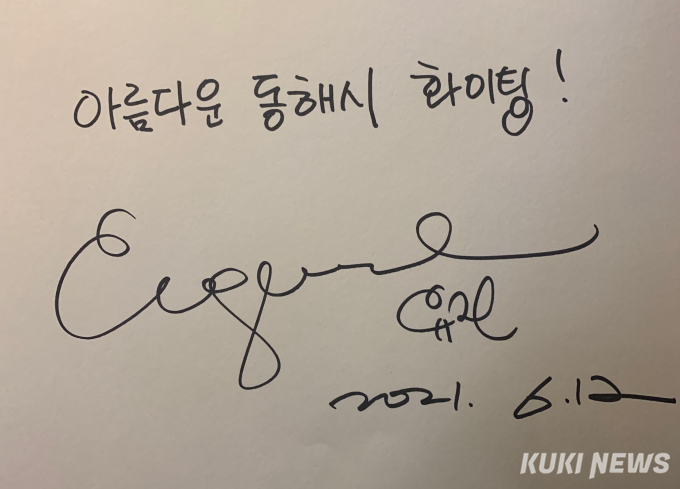 아름다운 동해시 화이팅!
Eugene
유진
2021. 6.12
KUKI NEWS